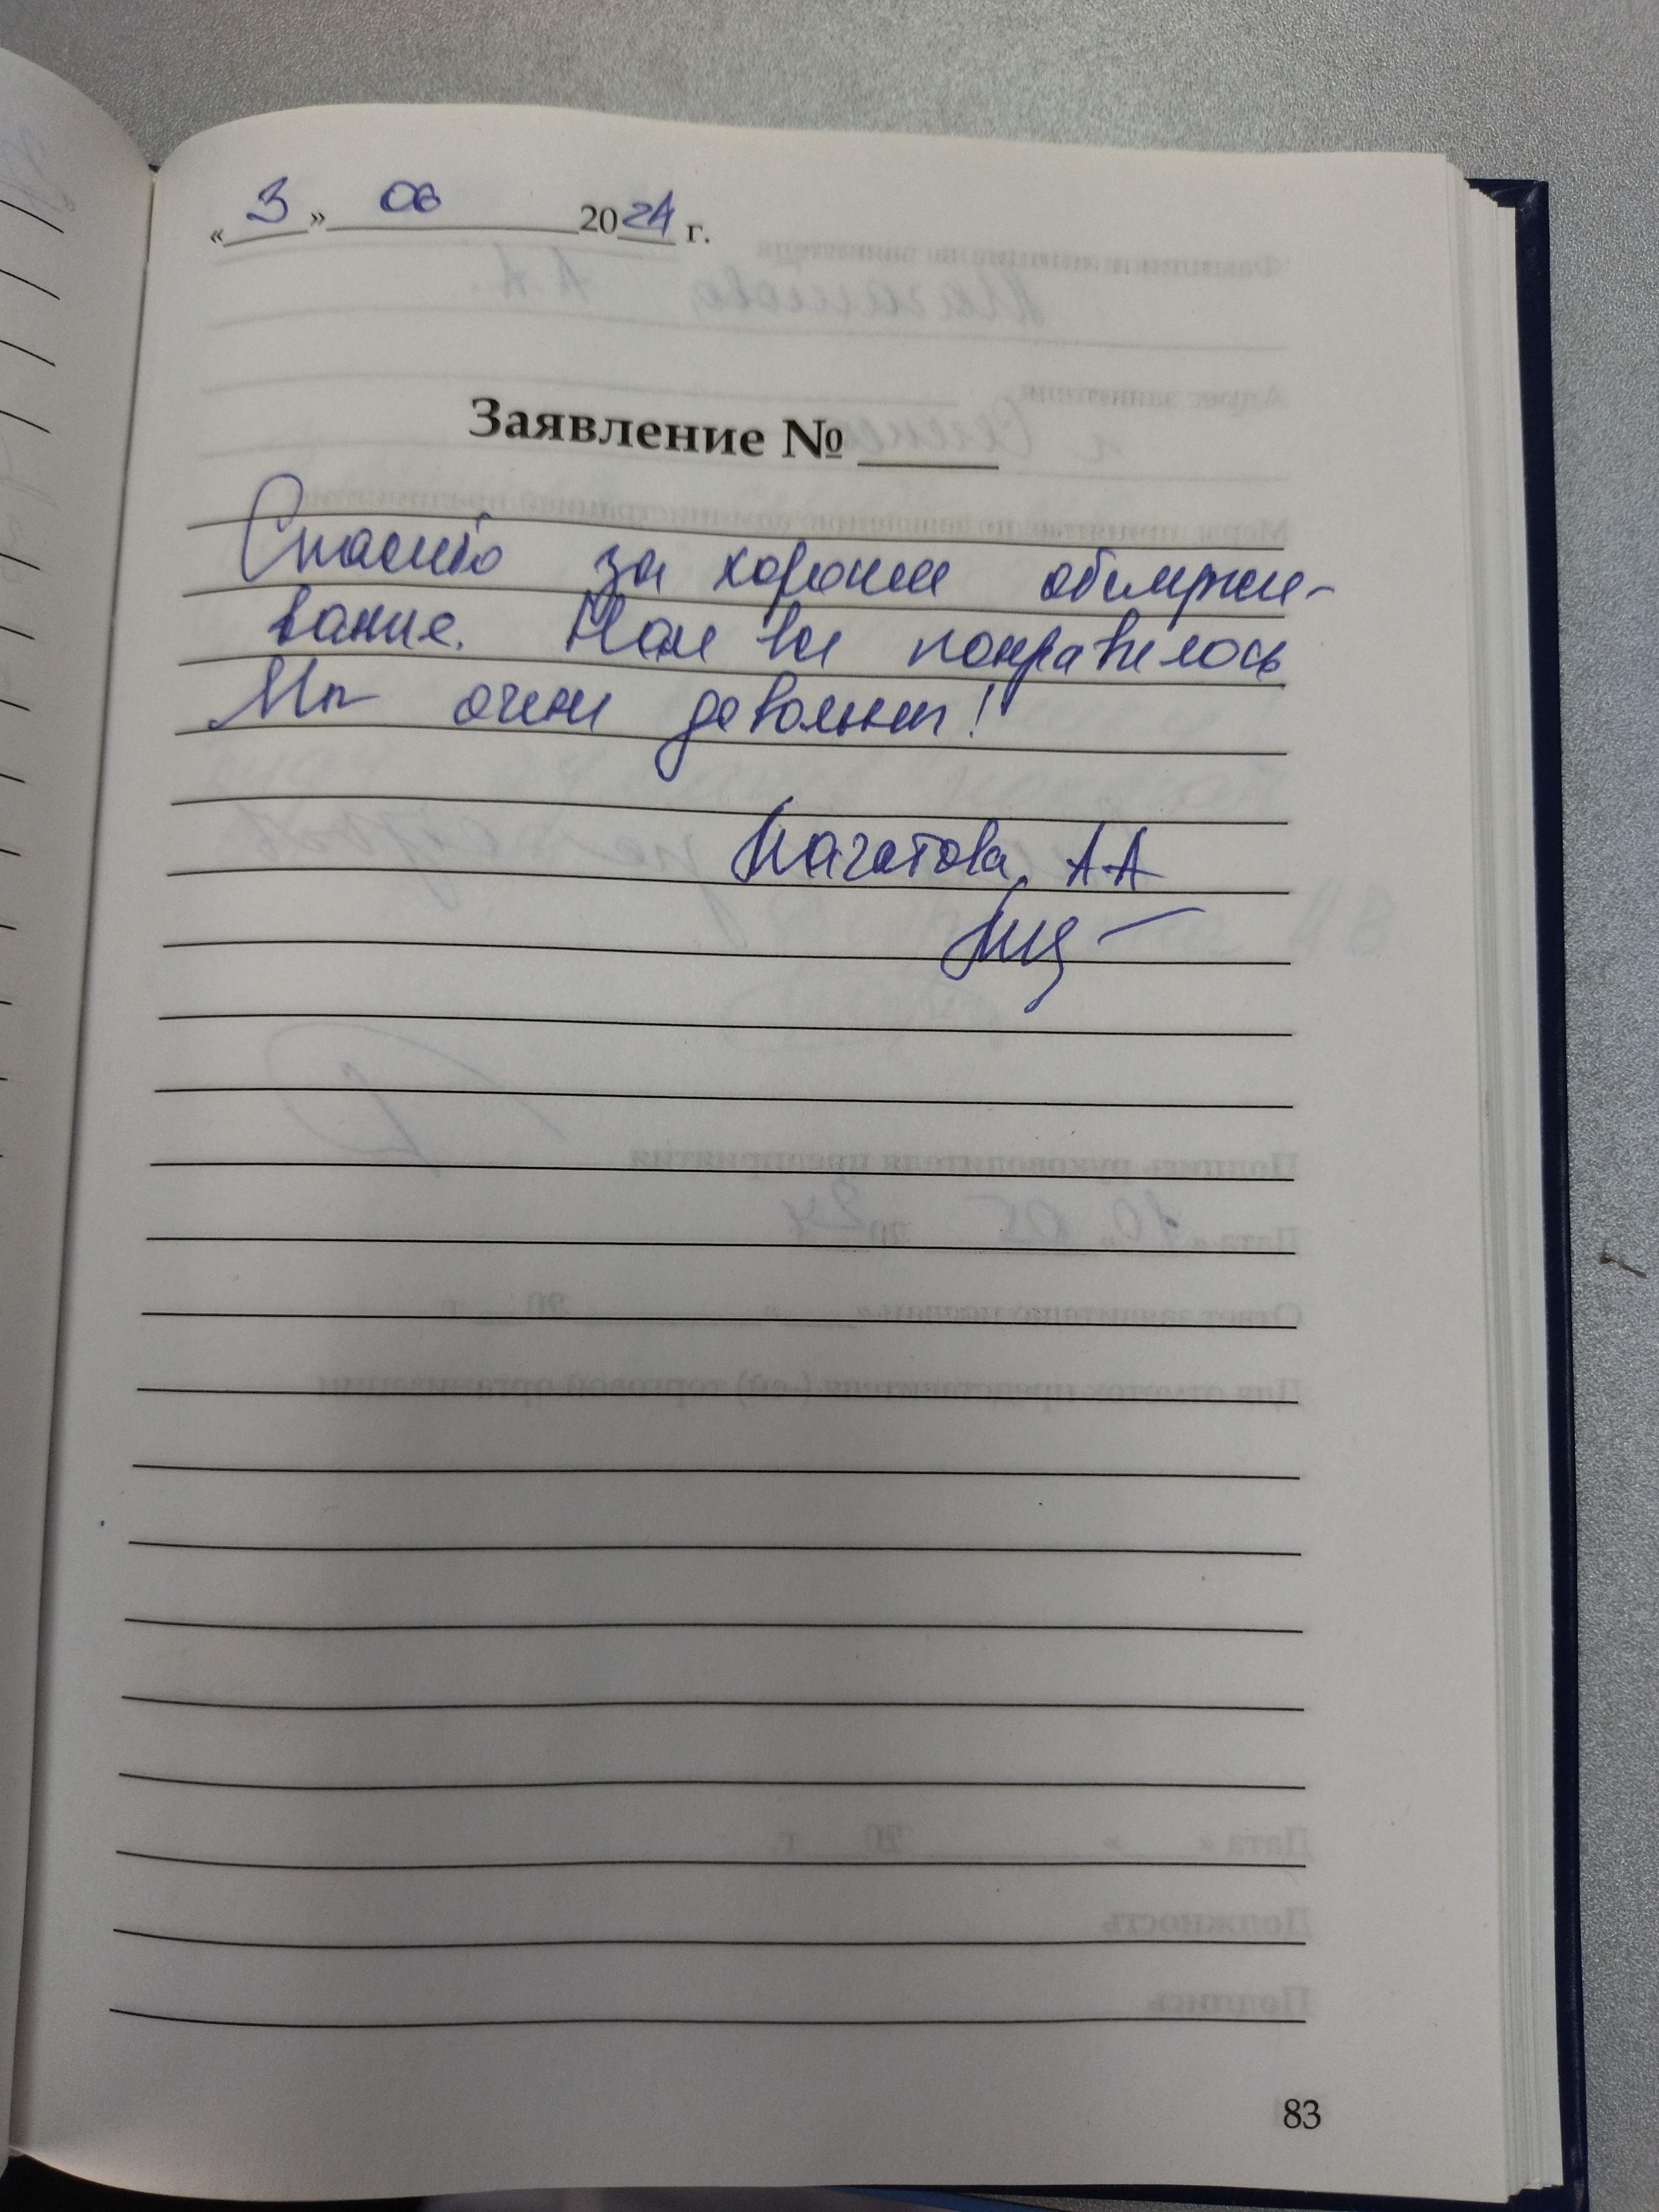 « 3 » 06 2024 г.
Заявление № ____
Спасибо за хорошее обслужи-
вание. Нам все понравилось
Мы очень довольны!
А.А
83